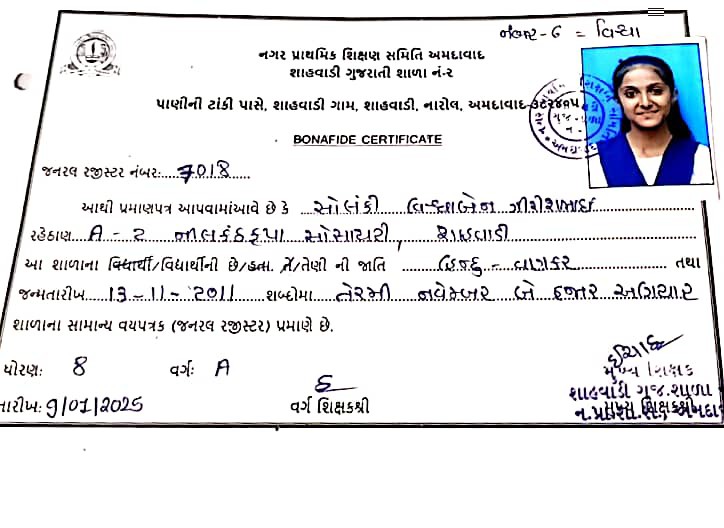 નંબર-6 = વિદ્યા
નગર પ્રાથમિક શિક્ષણ સમિતિ અમદાવાદ
શાહવાડી ગુજરાતી શાળા નં-૨
પાણીની ટાંકી પાસે, શાહવાડી ગામ, શાહવાડી, નારોલ, અમદાવાદ-૩૮૨૪૦૫
BONAFIDE CERTIFICATE
જનરલ રજીસ્ટર નંબર:.....7018......
આથી પ્રમાણપત્ર આપવામાંઆવે છે કે સોલંકી ગીરીશભાઈ
રહેઠાણ A - 2 નીલકંઠકૃપા સોસાયટી, શાહવાડી
આ શાળાના વિદ્યાર્થી/વિદ્યાર્થીની છે/હતા. તે/તેણી ની જાતિ હિન્દુ - વાણકર તથા
જન્મતારીખ...13-11-2011 શબ્દોમા તેરમી નવેમ્બર બે હજાર અગિયાર
શાળાના સામાન્ય વયપત્રક (જનરલ રજીસ્ટર) પ્રમાણે છે.
ધોરણ: 8 વર્ગ: A
મુખ્ય શિક્ષક
શાહવાડી ગુજ.શાળા
તારીખ: 9/01/2025 વર્ગ શિક્ષકશ્રી મુખ્ય શિક્ષકશ્રી